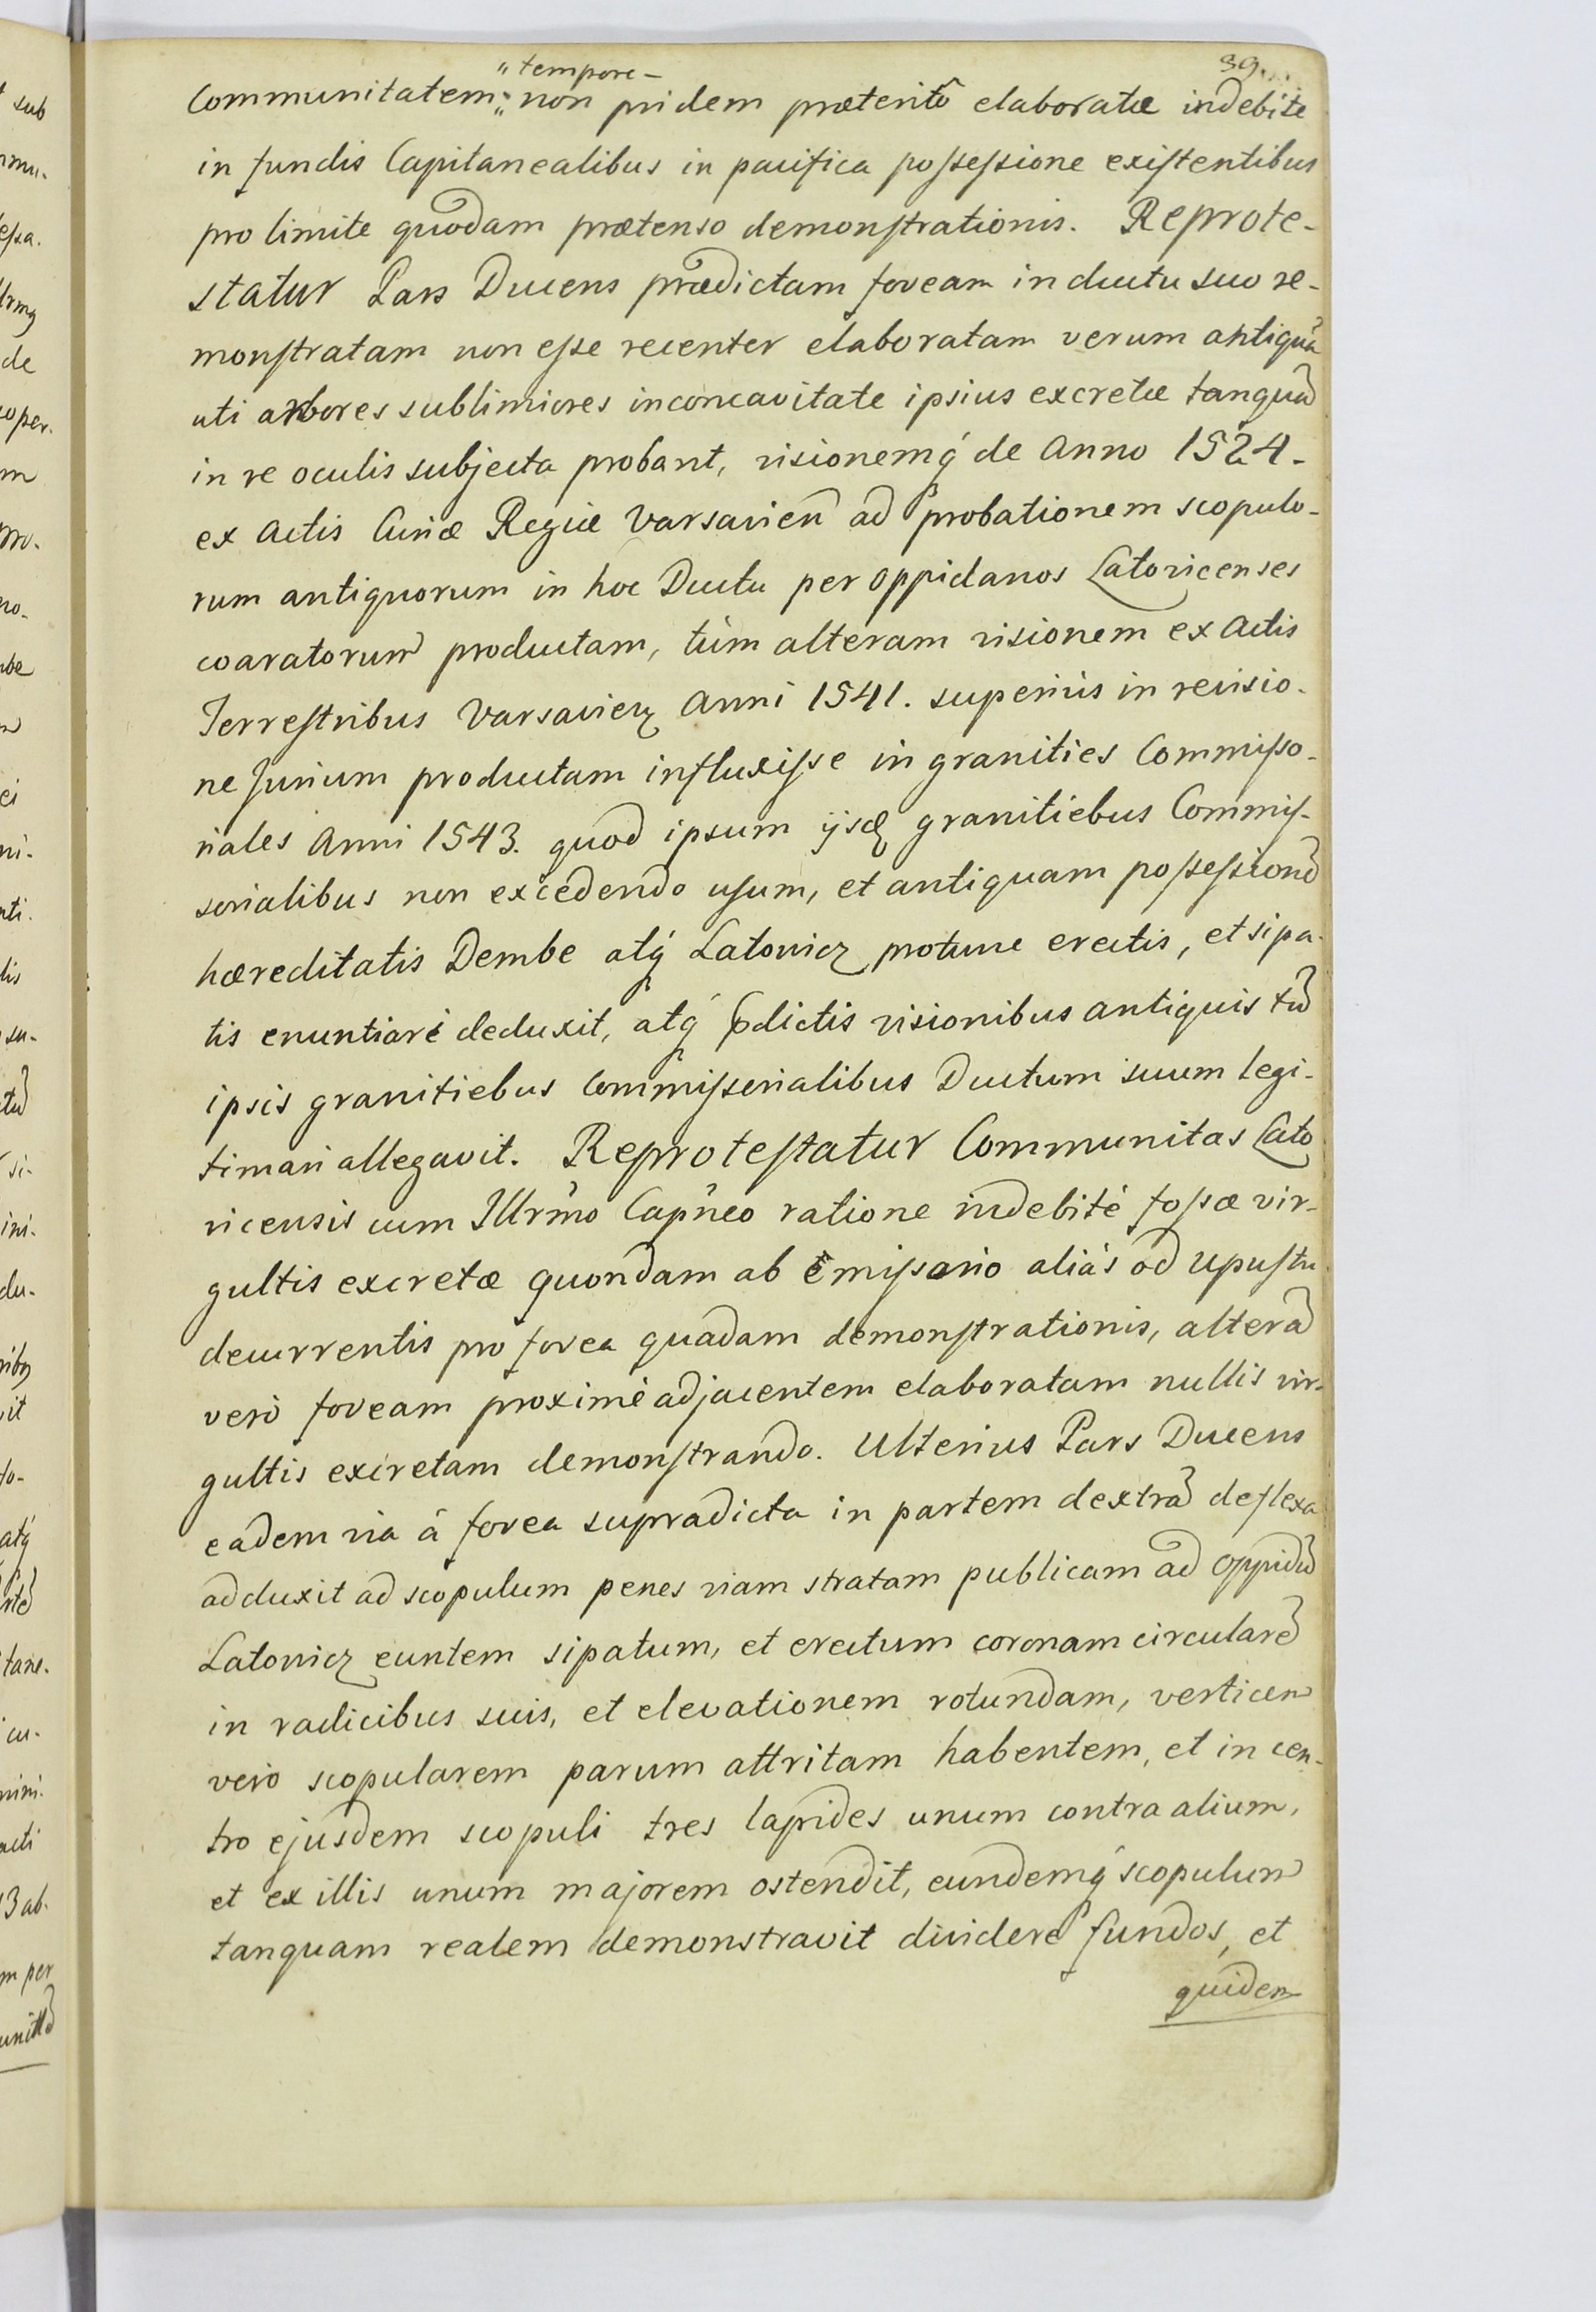 39.
"tempore-
Communitatem," non pridem præteritô elaboratæ indebite
in fundis Capitanealibus in pacifica poſseſsione exiſtentibus
pro limite quodam prætenso demonſtrationis. Reprote-
statur Pars Ducens prædictam foveam in ductu suo re-
monſtratam non eſse recenter elaboratam verum antiquã
uti arbores sublimiores in concavitate ipsius excretæ tanquã
in re oculis subjecta probant, visionemq́ de Anno 1524.
ex Actis Curiæ Regiæ Varsavien̄ ad probationem scopulo-
rum antiquorum in hoc Ductu per oppidanos Latovicenses
coaratorum̃ productam, tùm alteram visionem ex Actis
Terreſtribus Varsavien̄ Anni 1541. superiùs in revisio-
ne Jurium productam influxiſse in granities Commiſso-
riales Anni 1543. quod ipsum ijsđ granitiebus Commiſ-
sorialibus non excedendo uſum, et antiquam poſseſsionẽ
hæreditatis Dembe atq́ Latowicz protunc erectis, et sipa-
tis enuntiari deduxit, atq́ p̄dictis visionibus antiquis tũ
ipsis granitiebus Commiſsorialibus Ductum suum legi-
timari allegavit. Reproteſtatur Communitas Lato
vicensis cum Illr̃mo Cap̃neo ratione indebitè foſsæ vir-
gultis excretæ quondam ab emiſsario aliàs od Upuſtu
decurrentis pro fovea quadam demonſtrationis, alterã
verò foveam proximè adjacentem elaboratam nullis vir-
gultis excretam demonſtrando. Ulterius Pars Ducens
eadem via à fovea supradicta in partem dextrã deflexa
adduxit ad scopulum penes viam stratam publicam ad oppidũ
Latowicz euntem sipatum, et erectum coronam circularẽ
in radicibus suis, et elevationem rotundam, verticem̃
verò scopularem parum attritam habentem, et in cen-
tro ejusdem scopuli tres lapides unum contra alium,
et ex illis unum majorem ostendit, eundemq́ scopulum̃
tanquam realem demonstravit dividere fundos, et
quidem